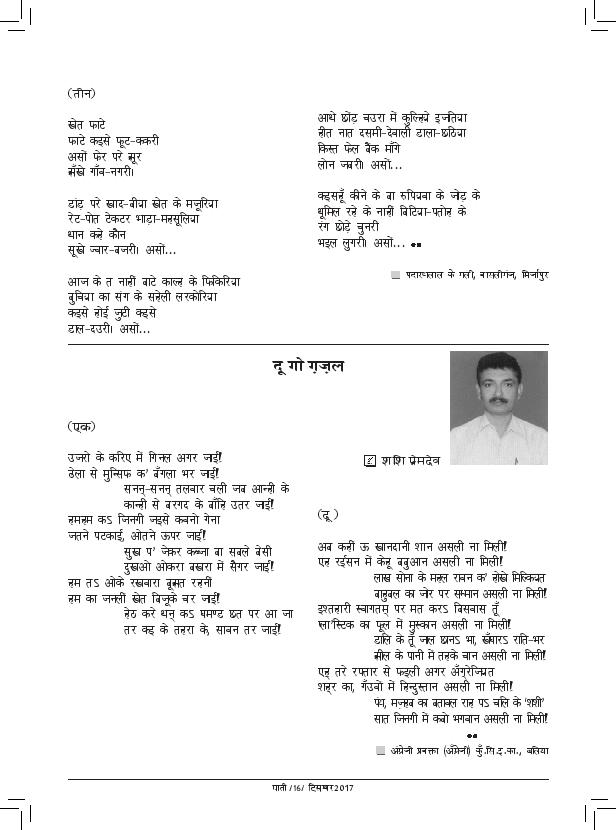 (तीन)
खेत फाटे
फाटे कइसे फूट-ककरी
असों फेर परे सूर
सँउसे गाँव-नगरी।
डांड़ परे खाद-बीया खेत के मजूरिया
रेट-पोत टेकटर भाड़ा-महसूलिया
थान कहे कौन
सूखे ज्वार-बजरी। असों...
आज के त नाहीं बाटे काल्ह के फिकिरिया
बुचिया का संग के सहेली लरकोरिया
कइसे होई जुटी कइसे
डाल-दउरी। असों...
आधे छोड़ चउरा में कुल्हिये इजतिया
हीत नात दसमी-देवाली डाला-छठिया
किस्त फेल बैंक माँगे
लोन जबरी। असों...
कइसहूँ कीने के बा रुपियवा के जोड़ के
धूमिल रहे के नाहीं बिटिया-पतोह के
रंग छोड़े चुनरी
भइल लुगरी। असों...
पदारथलाल के गली, वासलीगंज, मिर्जापुर
दू गो ग़ज़ल
शशि प्रेमदेव
(एक)
उजरो के करिए में गिनल अगर जाई!
ठेला से मुन्सिफ क' बँगला भर जाई!
सनन्-सनन् तलवार चली जब आन्ही के
कान्ही से बरगद के बाँहि उतर जाई!
हमहम कऽ जिनगी जइसे कवनो गेना
जतने पटकाई, ओतने ऊपर जाई!
सुख प' जेकर कब्जा बा सबले बेसी
दुखओ ओकरा बखरा में सैगर जाई!
हम तऽ ओके रखवारा बूझत रहनी
हम का जनलीं खेत बिजूके चर जाई!
हेठ करे थन् कऽ घमण्ड छत पर आ जा
तर कइ के तहरा के, सावन तर जाई!
(दू)
अब कहीं ऊ खानदानी शान असली ना मिली!
एह रईसन में केहू बबुआन असली ना मिली!
लाख सोना के महल रावन क' होखे मिल्कियत
बाहुबल का जोर पर सम्मान असली ना मिली!
इश्तहारी स्वागतम् पर मत करऽ बिसवास तूँ
प्ला'स्टिक का फूल में मुस्कान असली ना मिली!
डालि के तूँ जाल छानऽ भा, खँघारऽ राति-भर
झील के पानी में तहके चान असली ना मिली!
एह तरे रफ्तार से फइली अगर अँगुरेजियत
शहर का, गँउवों में हिन्दुस्तान असली ना मिली!
पंथ, मज़हब का बतावल राह पऽ चलि के 'शशी'
सात जिनगी में कबो भगवान असली ना मिली!
अंग्रेजी प्रवक्ता (अँग्रेजी) कुँ.सि.इ.का., बलिया
पाती /16/ दिसम्बर 2017